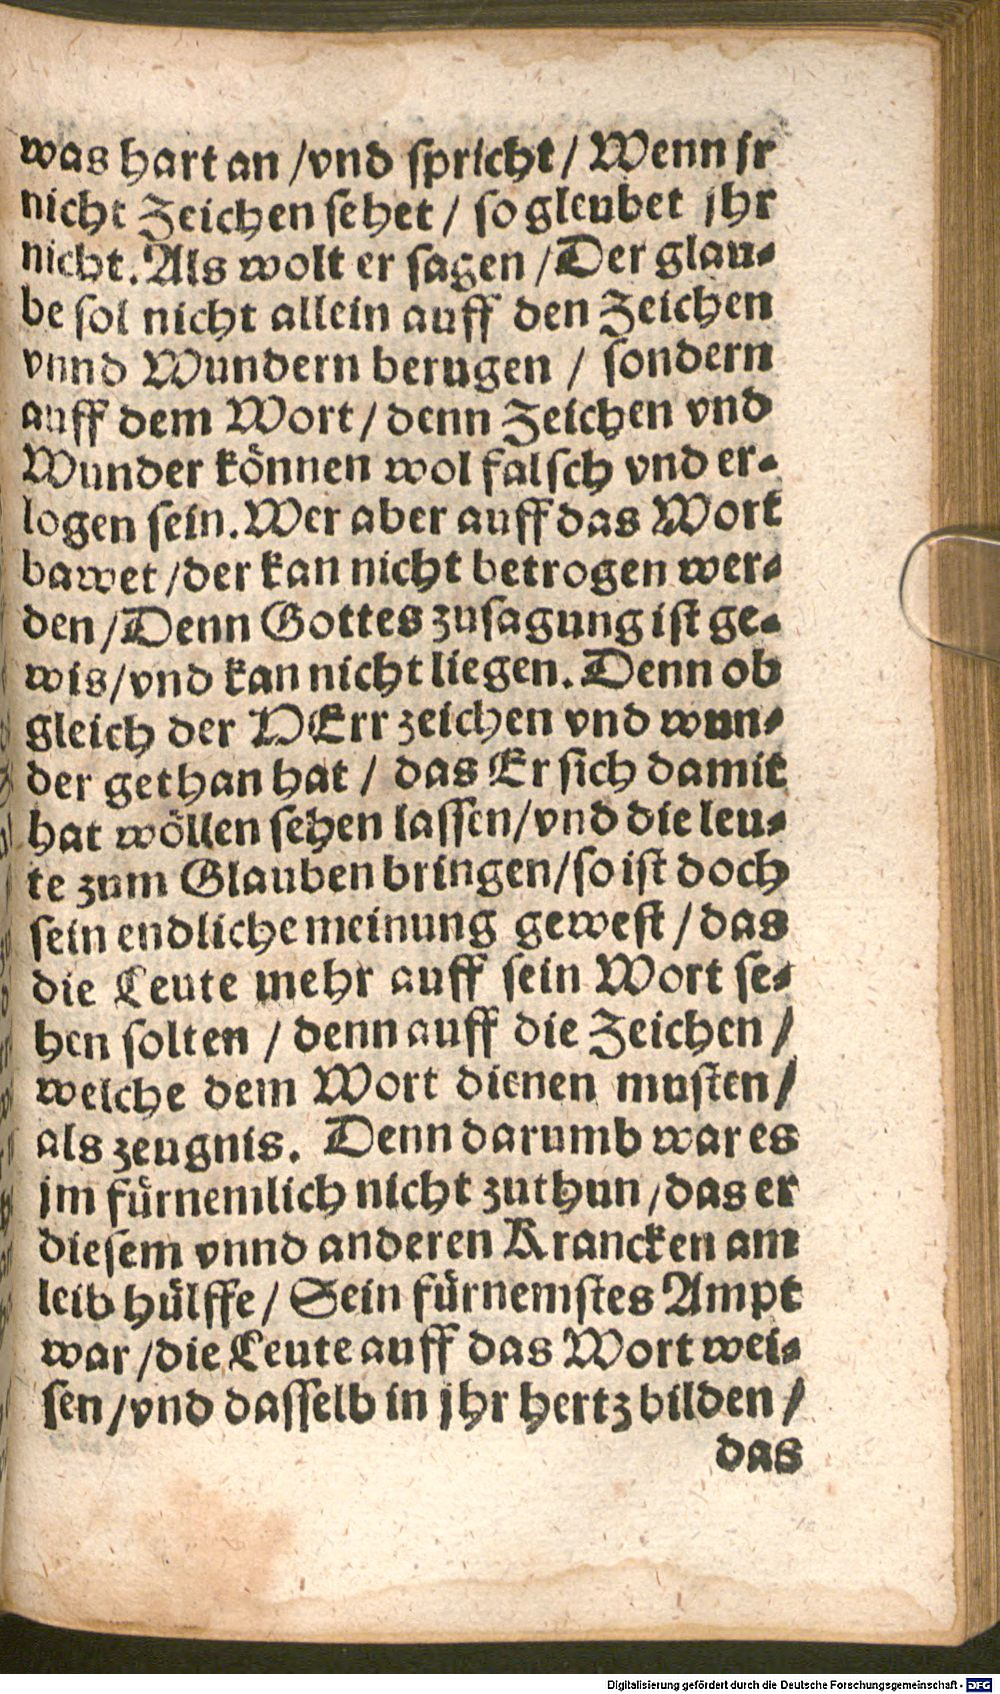 was hart an / vnd spricht / Wenn jr
nicht Zeichen sehet / so gleubet jhr
nicht. Als wolt er sagen / Der glau-
be sol nicht allein auff den Zeichen
vnnd Wundern berugen / sondern
auff dem Wort / denn Zeichen vnd
Wunder können wol falsch vnd er-
logen sein. Wer aber auff das Wort
bawet / der kan nicht betrogen wer-
den / Denn Gottes zusagung ist ge-
wis / vnd kan nicht liegen. Denn ob
gleich der HErr zeichen vnd wun-
der gethan hat / das Er sich damit
hat wöllen sehen lassen / vnd die leu-
te zum Glauben bringen / so ist doch
sein endliche meinung gewest / das
die Leute mehr auff sein Wort se-
hen solten / denn auff die Zeichen /
welche dem Wort dienen musten /
als zeugnis. Denn darumb war es
jm fürnemlich nicht zuthun / das er
diesem vnnd anderen Krancken am
leib hülffe / Sein fürnemstes Ampt
war / die Leute auff das Wort wei-
sen / vnd dasselb in jhr hertz bilden /
das
Digitalisierung gefördert durch die Deutsche Forschungsgemeinschaft - DFG